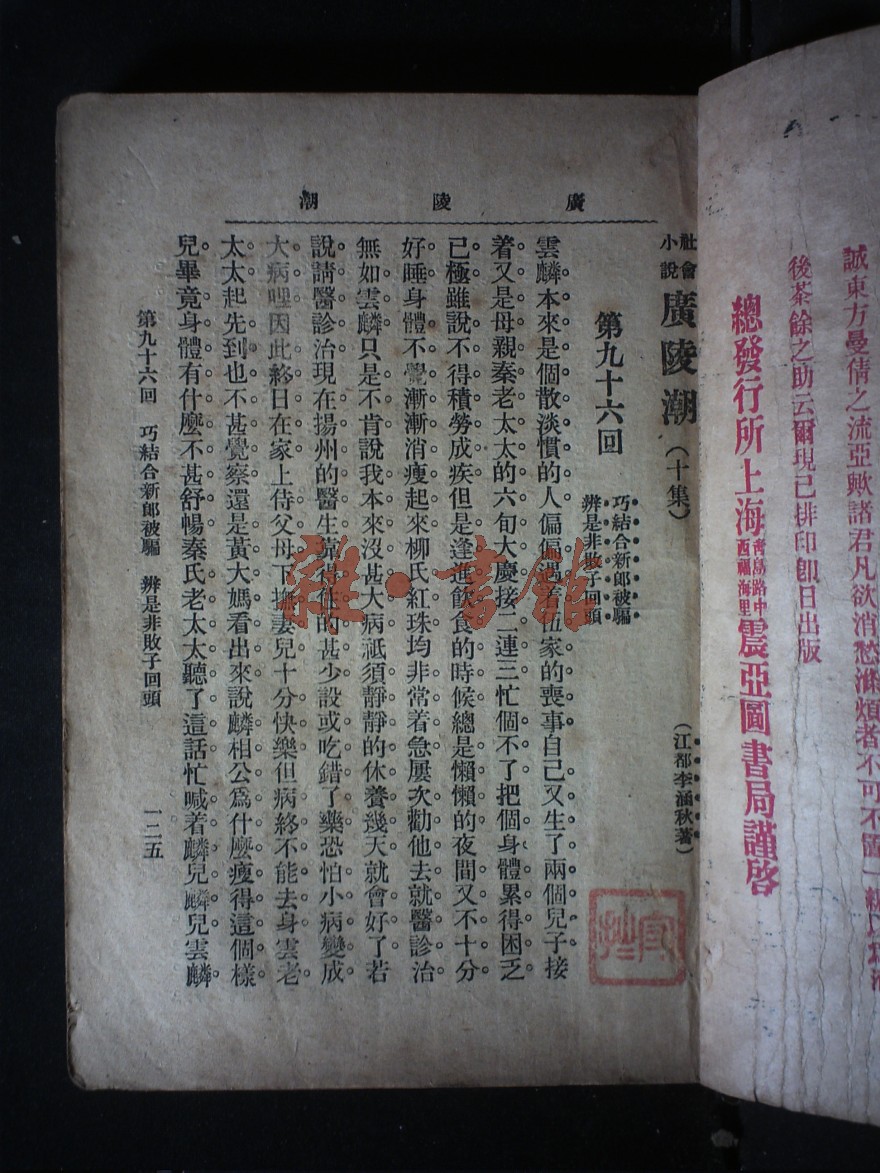 誠東方曼倩之流亞歟諸君凡欲消愁滌煩者不可不置一編
後茶餘之助云爾現已排印卽日出版
總發行所上海青島路中西福海里震亞圖書局謹啓
廣陵潮
社會小說 廣陵潮（十集）
（江都李涵秋著）
第九十六回
巧結合新郎被騙
辨是非敗子回頭
雲麟本來是個散淡慣的人偏偏遇着伍家的喪事自己又生了兩個兒子接
着又是母親秦老太太的六旬大慶接二連三忙個不了把個身體累得困乏
已極雖說不得積勞成疾但是逢進飲食的時候總是懶懶的夜間又不十分
好睡身體不覺漸漸消瘦起來柳氏紅珠均非常着急屢次勸他去就醫診治
無如雲麟只是不肯說我本來沒甚大病祗須靜靜的休養幾天就會好了若
說請醫診治現在揚州的醫生靠得住的甚少設或吃錯了藥恐怕小病變成
大病哩因此終日在家上侍父母下撫妻兒十分快樂但病終不能去身雲老
太太起先到也不甚覺察還是黃大媽看出來說麟相公爲什麼瘦得這個樣
兒畢竟身體有什麼不甚舒暢秦氏老太太聽了這話忙喊着麟兒麟兒雲麟
第九十六回 巧結合新郎被騙 辨是非敗子回頭
一二五
雜·書館